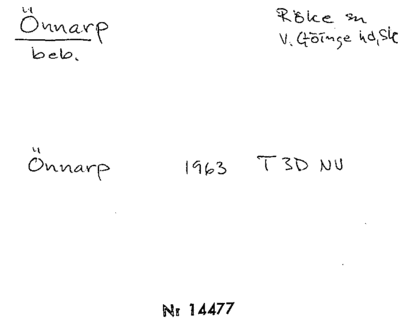 Önnarp
beb.
Röke sn
V. Göinge hd, Sk
Önnarp 1963 T 3D NV
Nr 14477